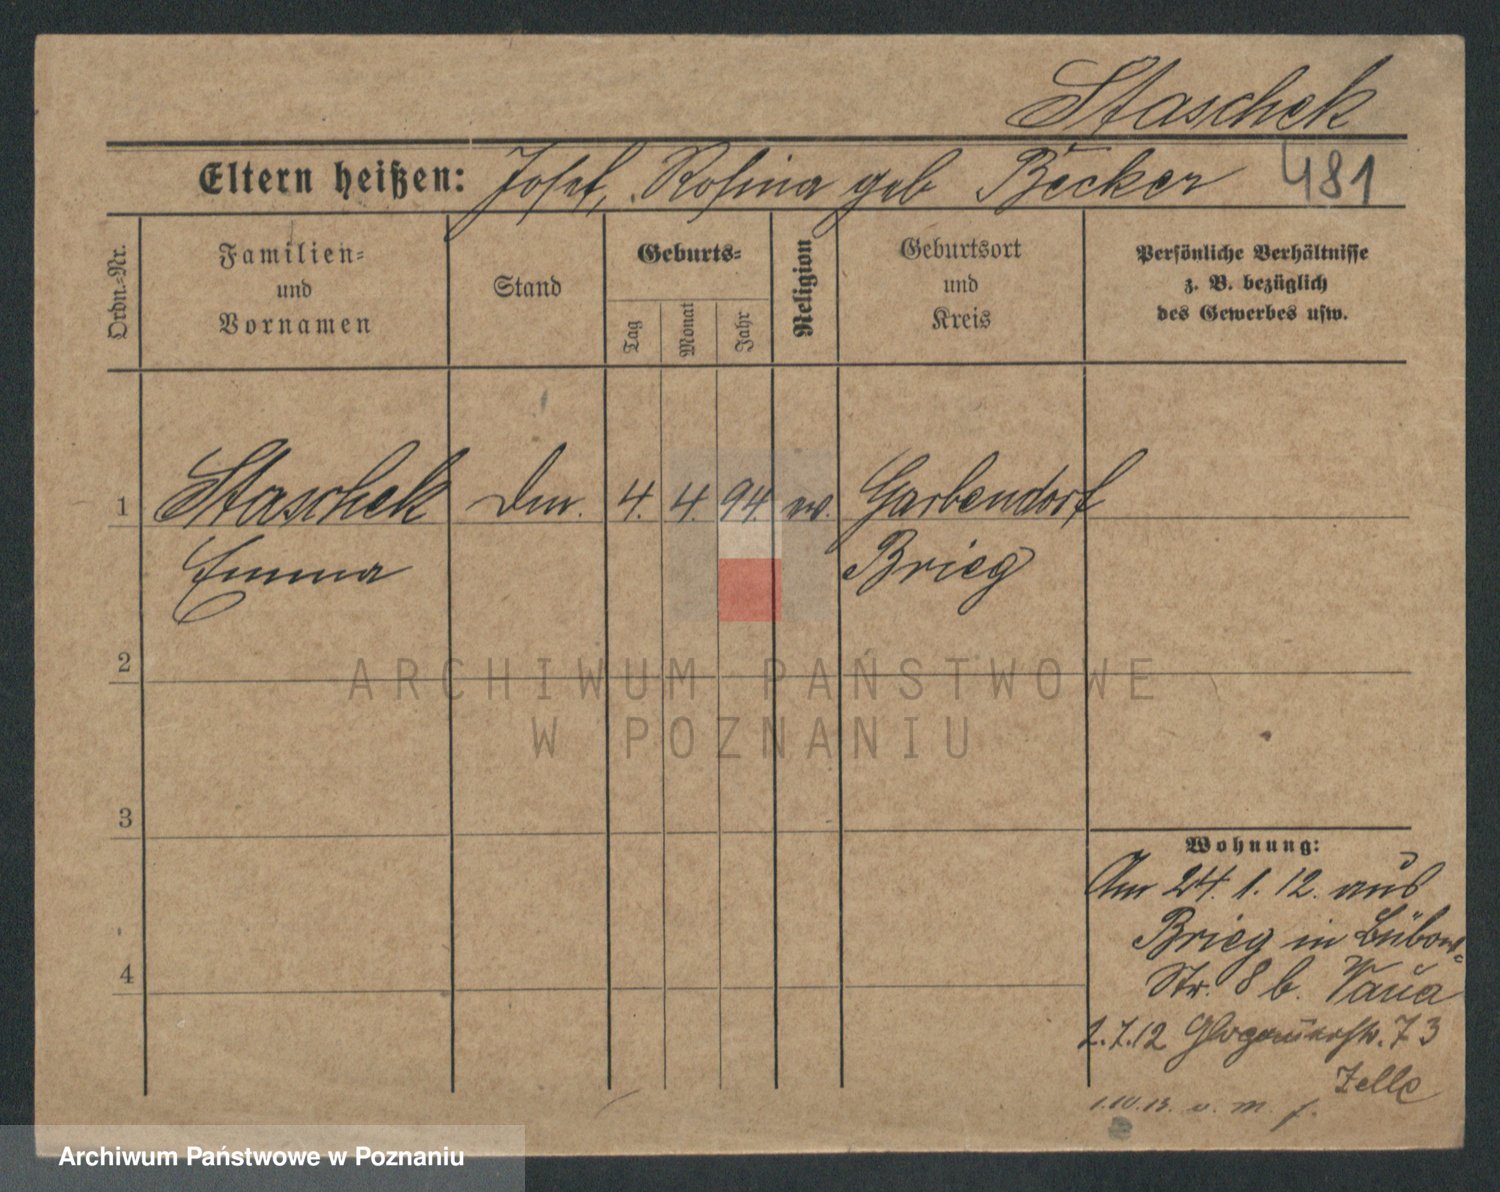 Staschek
Eltern heißen: Josef, Rosina geb Becker 481
Ordn.-Nr.
Familien- und Vornamen
Stand
Geburts-
Tag
Monat
Jahr
Religion
Geburtsort und Kreis
Persönliche Verhältnisse
z. B. bezüglich
des Gewerbes usw.
1 Staschek 4. 4. 94. ev. Garbendorf
Emma Brieg
2
ARCHIWUM PAŃSTWOWE
W POZNANIU
3
4
Wohnung:
Am 24. 1. 12. aus
Brieg in Bübow-
Str. 8 b.
2.7.12 Glogauerstr. 73
Zelle
Archiwum Państwowe w Poznaniu